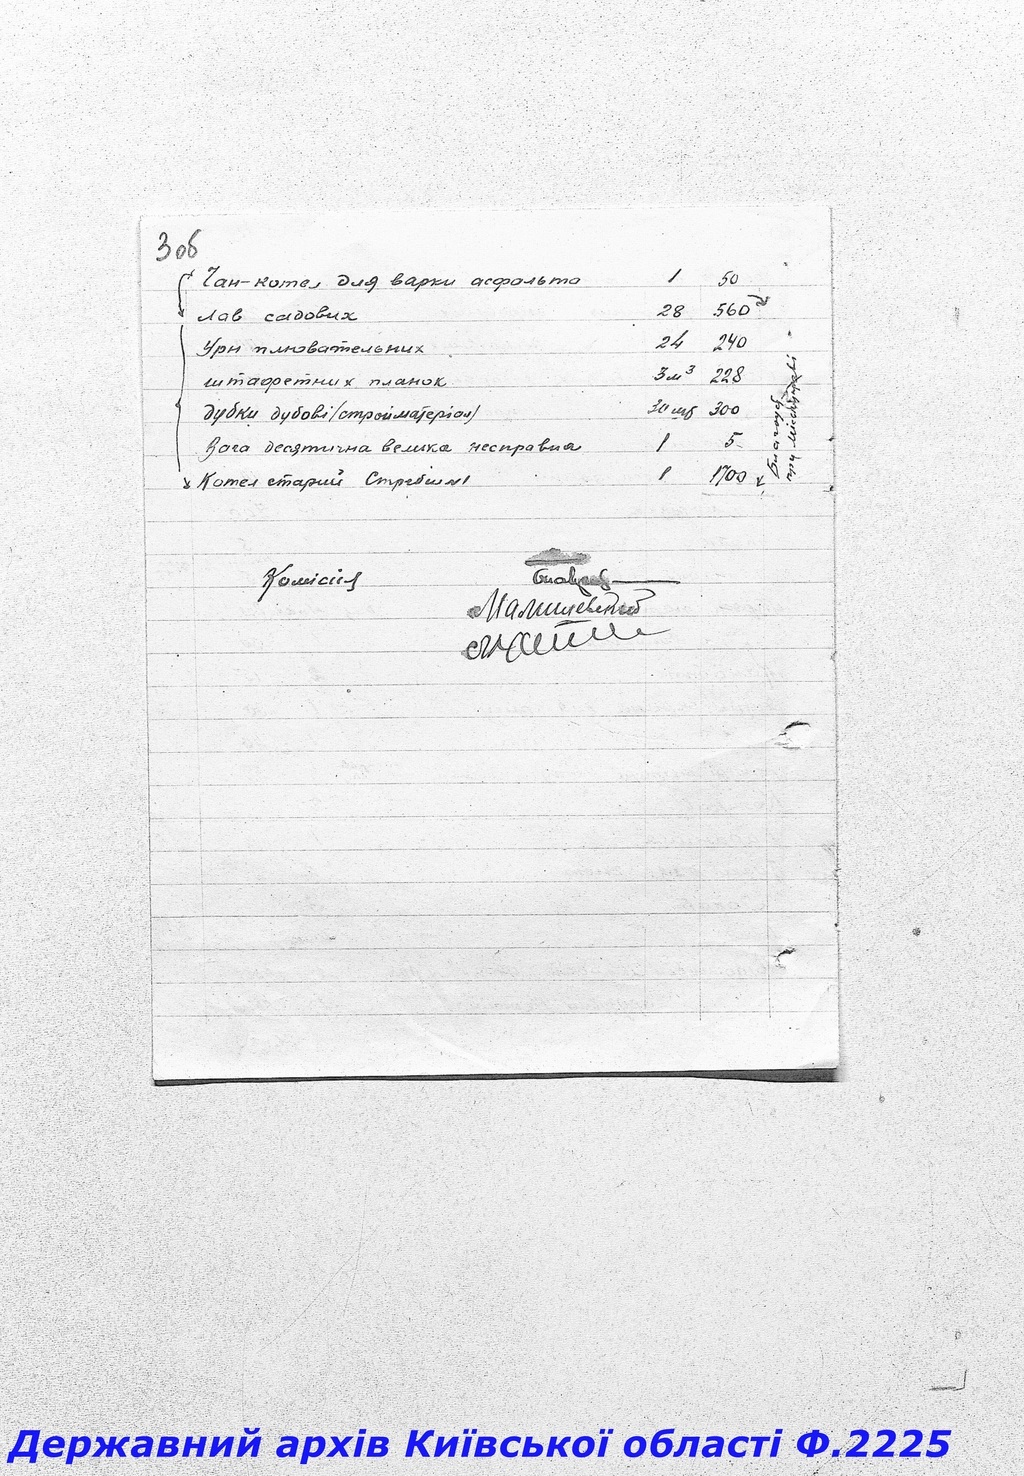 3 об
Чан-котел для варки асфольта 1 50
Лав садових 28 560
Урн плювательних 24 240
штафетних планок 3м³ 228
Дубки дубові (стройматеріал) 30 шт 300
Вага десятична велика несправна 1 5
Котел старий 1 1700
Комісія
Малишевський
Державний архів Київської області Ф.2225